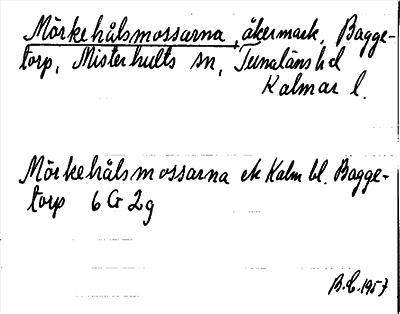 Mörkehålsmossarna, åkermark, Bagge-
torp, Misterhults sn, Tunaläns hd
Kalmar l.
Mörkehålsmossarna ek Kalm bl. Bagge-
torp 6 G 2g
B.E. 1957